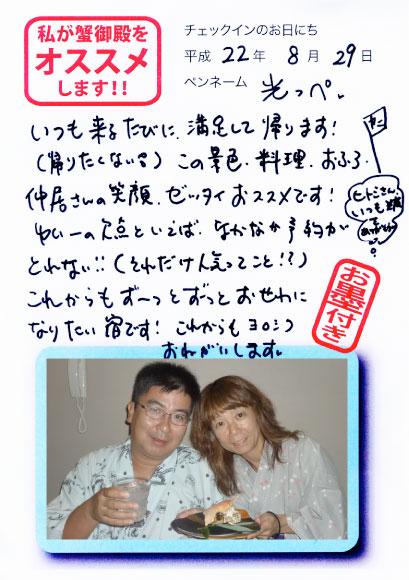 私が蟹御殿を
オススメ
します!!
チェックインのお日にち
平成 22年 8月 29日
ペンネーム 光っぺ。
いつも来るたびに、満足して帰ります!
(帰りたくない) この景色、料理、おふろ、
仲居さんの笑顔、ゼッタイおススメです!
ゆい一の欠点といえば、なかなか予約が
とれない!!(それだけ人気ってこと!?)
これからもず〜っとずっとおせわに
なりたい宿です! これからもヨロシク
おねがいします。
カニ
ヒトミさん、
いつも
ありがとう
お墨付き